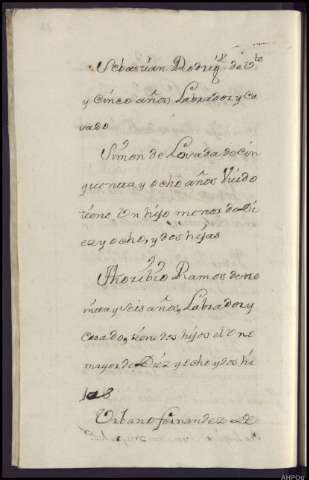 Sebastian Rodrig.z de v.te
y cinco años Labrador y ca
sado
Simon de Losada de cin
quenta y ocho años Viudo
tiene Un hijo menor de Di
ez y ocho, y dos hijas
Thoribio Ramos de tre
inta y seis años, Labrador y
Casado, tiene dos hijos el Uno
mayor de Diez y ocho y dos hi
jas
Urbano fernandez de
AHPOu